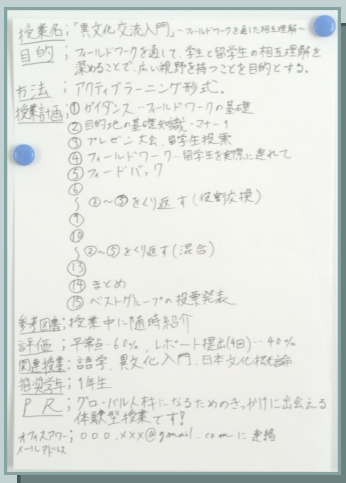 授業名;「異文化交流入門」~フィールドワークを通じた相互理解~
目的;フィールドワークを通して、学生と留学生の相互理解を
深めることで、広い視野を持つことを目的とする。
方法;アクティブラーニング形式。
授業計画;①ガイダンス―フィールドワークの基礎
②目的地の基礎知識
③プレゼン大会、留学生投票
④フィールドワーク―留学生を実際に連れて
⑤フィードバック
⑥
~②~⑤をくり返す(役割交換)
⑨
⑩
~②~⑤をくり返す(混合)
⑬
⑭まとめ
⑮ベストグループの投票発表
参考図書;授業中に随時紹介
評価;平常点…60%、レポート提出(4回)…40%
関連授業;語学、異文化入門、日本文化概論
推奨学年;1年生
PR;グローバル人材になるためのきっかけに出会える
体験型授業です!
オフィスアワー;000.xxx@gmail.comに連絡
メールアドレス